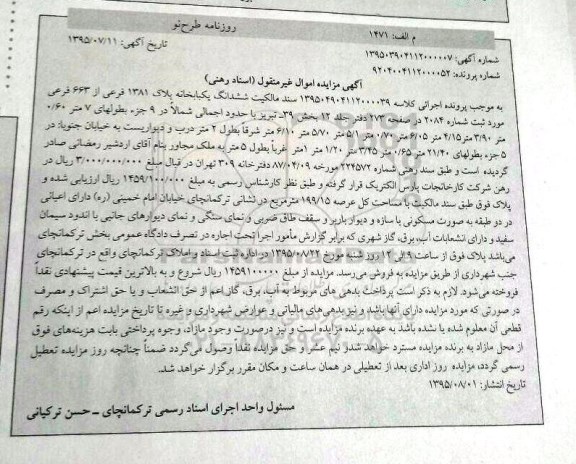 م الف: ۱۴۷۱
روزنامه طرح‌نو
شماره آگهی: ۱۳۹۵۰۳۹۰۴۱۱۲۰۰۰۰۰۷
تاریخ آگهی: ۱۳۹۵/۰۷/۱۱
شماره پرونده: ۹۲۰۴۰۰۴۱۱۲۰۰۰۰۵۲
آگهی مزایده اموال غیرمنقول (اسناد رهنی)
به موجب پرونده اجرائی کلاسه ۱۳۹۵۰۴۹۰۴۱۱۲۰۰۰۰۳۹ سند مالکیت ششدانگ یکبابخانه پلاک ۱۳۸۱ فرعی از ۶۶۳ فرعی
مورد ثبت شماره ۲۰۸۴ در صفحه ۲۷۳ دفتر جلد ۱۲ بخش ۳۹ـ تبریز با حدود اجمالی شمالاً در ۹ جزء بطولهای ۷ متر ۰/۶۰
متر ۳/۹۰ متر ۴/۱۵ متر ۶/۰۵ متر ۰/۷۰ متر ۵/۱ متر ۵/۷۰ متر ۶/۱۰ متر شرقاً بطول ۲ متر درب و دیواریست به خیابان جنوبا: در
۵ جزء بطولهای ۲۱/۴۰ متر ۰/۶۵ متر ۳/۴۵ متر ۱/۲۰ متر ۱متر غرباً بطول ۵ متر به ملک مجاور بنام آقای اردشیر رمضانی صادر
گردیده است و طبق سند رهنی شماره ۲۲۴۵۷۲ مورخه ۸۷/۰۴/۰۹ دفترخانه ۳۰۹ تهران در قبال مبلغ ۳/۰۰۰/۰۰۰/۰۰۰ ریال در
رهن شرکت کارخانجات پارس الکتریک قرار گرفته و طبق نظر کارشناس رسمی به مبلغ ۱۴۵۹/۱۰۰/۰۰۰ ریال ارزیابی شده و
پلاک فوق طبق سند مالکیت با مساحت کل عرصه ۱۹۹/۱۵ مترمربع در نشانی ترکمانچای خیابان امام خمینی (ره) دارای اعیانی
در دو طبقه به صورت مسکونی با سازه و دیوار باربر و سقف طاق ضربی و نمای سنگی و نمای دیوارهای جانبی با اندود سیمان
سفید و دارای انشعابات آب، برق، گاز شهری که برابر گزارش مأمور اجرا تحت اجاره در تصرف دادگاه عمومی بخش ترکمانچای
می‌باشد پلاک فوق از ساعت ۹ الی ۱۲ روز شنبه مورخ ۱۳۹۵/۰۸/۲۲ در اداره ثبت اسناد و املاک ترکمانچای واقع در ترکمانچای
جنب شهرداری از طریق مزایده به فروش می‌رسد. مزایده از مبلغ ۱۴۵۹۱۰۰۰۰۰ ریال شروع و به بالاترین قیمت پیشنهادی نقداً
فروخته می‌شود. لازم به ذکر است پرداخت بدهی های مربوط به آب، برق، گاز اعم از حق انشعاب و یا حق اشتراک و مصرف
در صورتی که مورد مزایده دارای آنها باشد و نیز بدهی‌های مالیاتی و عوارض شهرداری و غیره تا تاریخ مزایده اعم از اینکه رقم
قطعی آن معلوم شده یا نشده باشد به عهده برنده مزایده است و نیز درصورت وجود مازاد، وجوه پرداختی بابت هزینه‌های فوق
از محل مازاد به برنده مزایده مسترد خواهد شد و نیم عشر و حق مزایده نقداً وصول می‌گردد ضمناً چنانچه روز مزایده تعطیل
رسمی گردد، مزایده روز اداری بعد از تعطیلی در همان ساعت و مکان مقرر برگزار خواهد شد.
تاریخ انتشار: ۱۳۹۵/۰۸/۰۱
مسئول واحد اجرای اسناد رسمی ترکمانچای ـ حسن ترکیانی